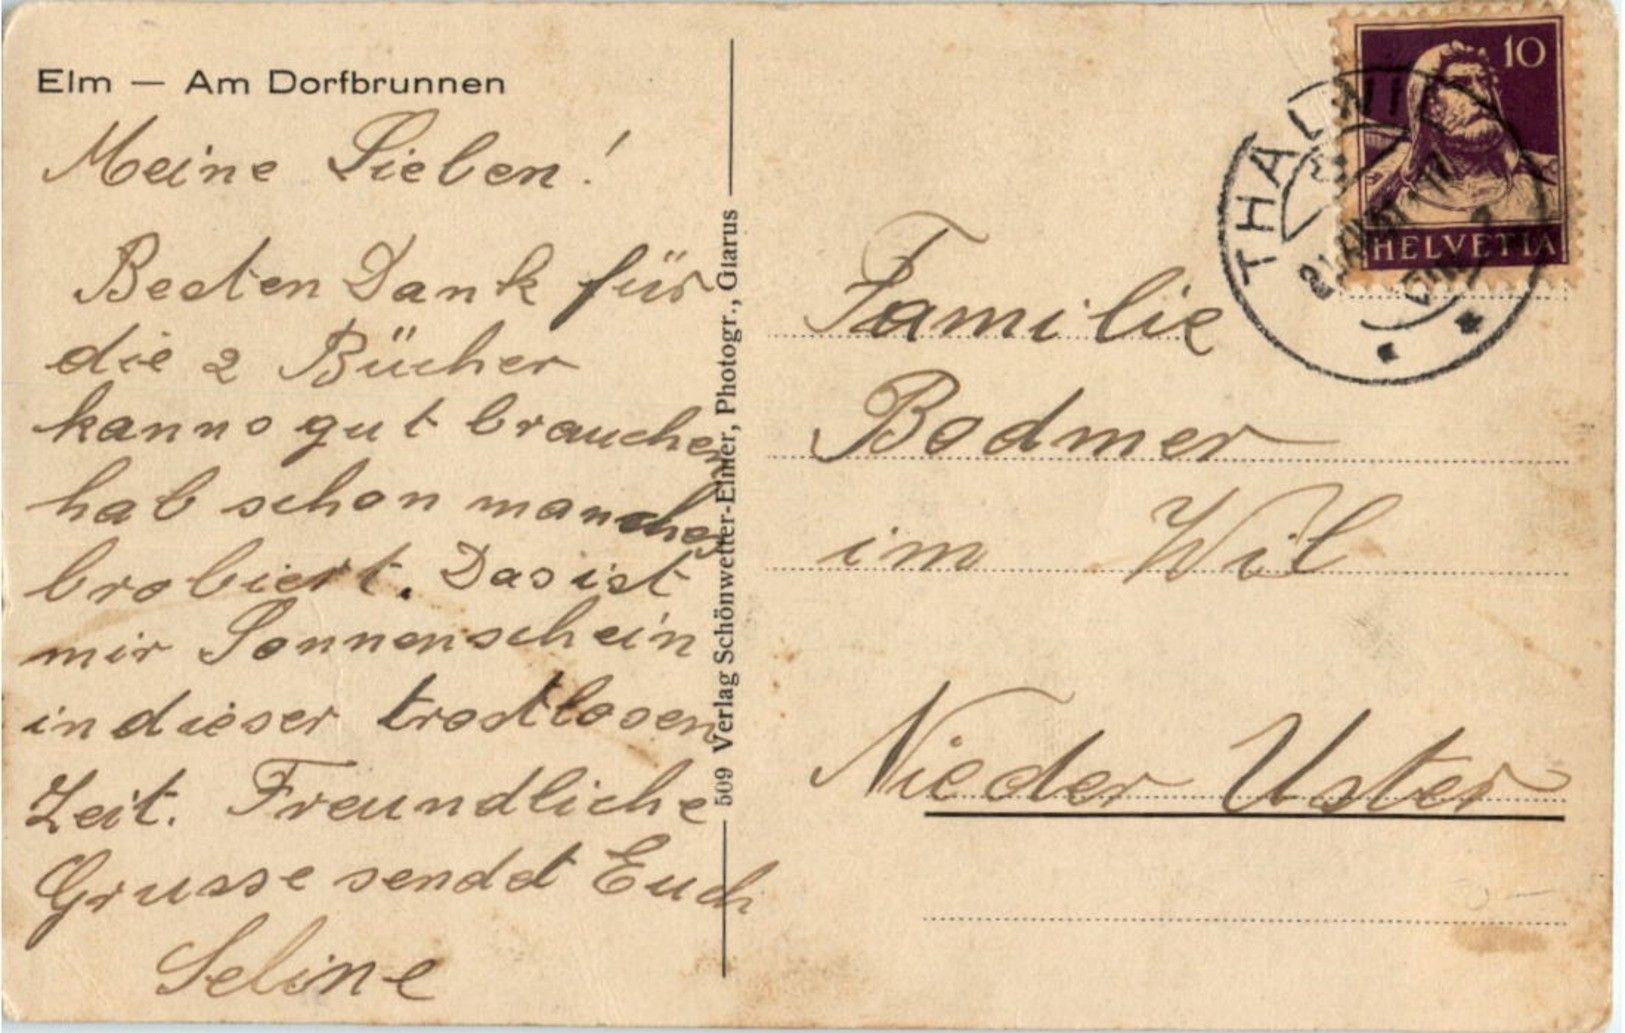 Elm — Am Dorfbrunnen
Meine Lieben!
Besten Dank für
die 2 Bücher
kann so gut brauchen
hab schon manches
brobiert. Das ist
mir Sonnenschein
in dieser trostlosen
Zeit. Freundliche
Grusse sendet Euch
Seline
509 Verlag Schönwetter-Elmer, Photogr., Glarus
10
HELVETIA
THALWIL
Familie
Bodmer
im Wil
Nieder Uster